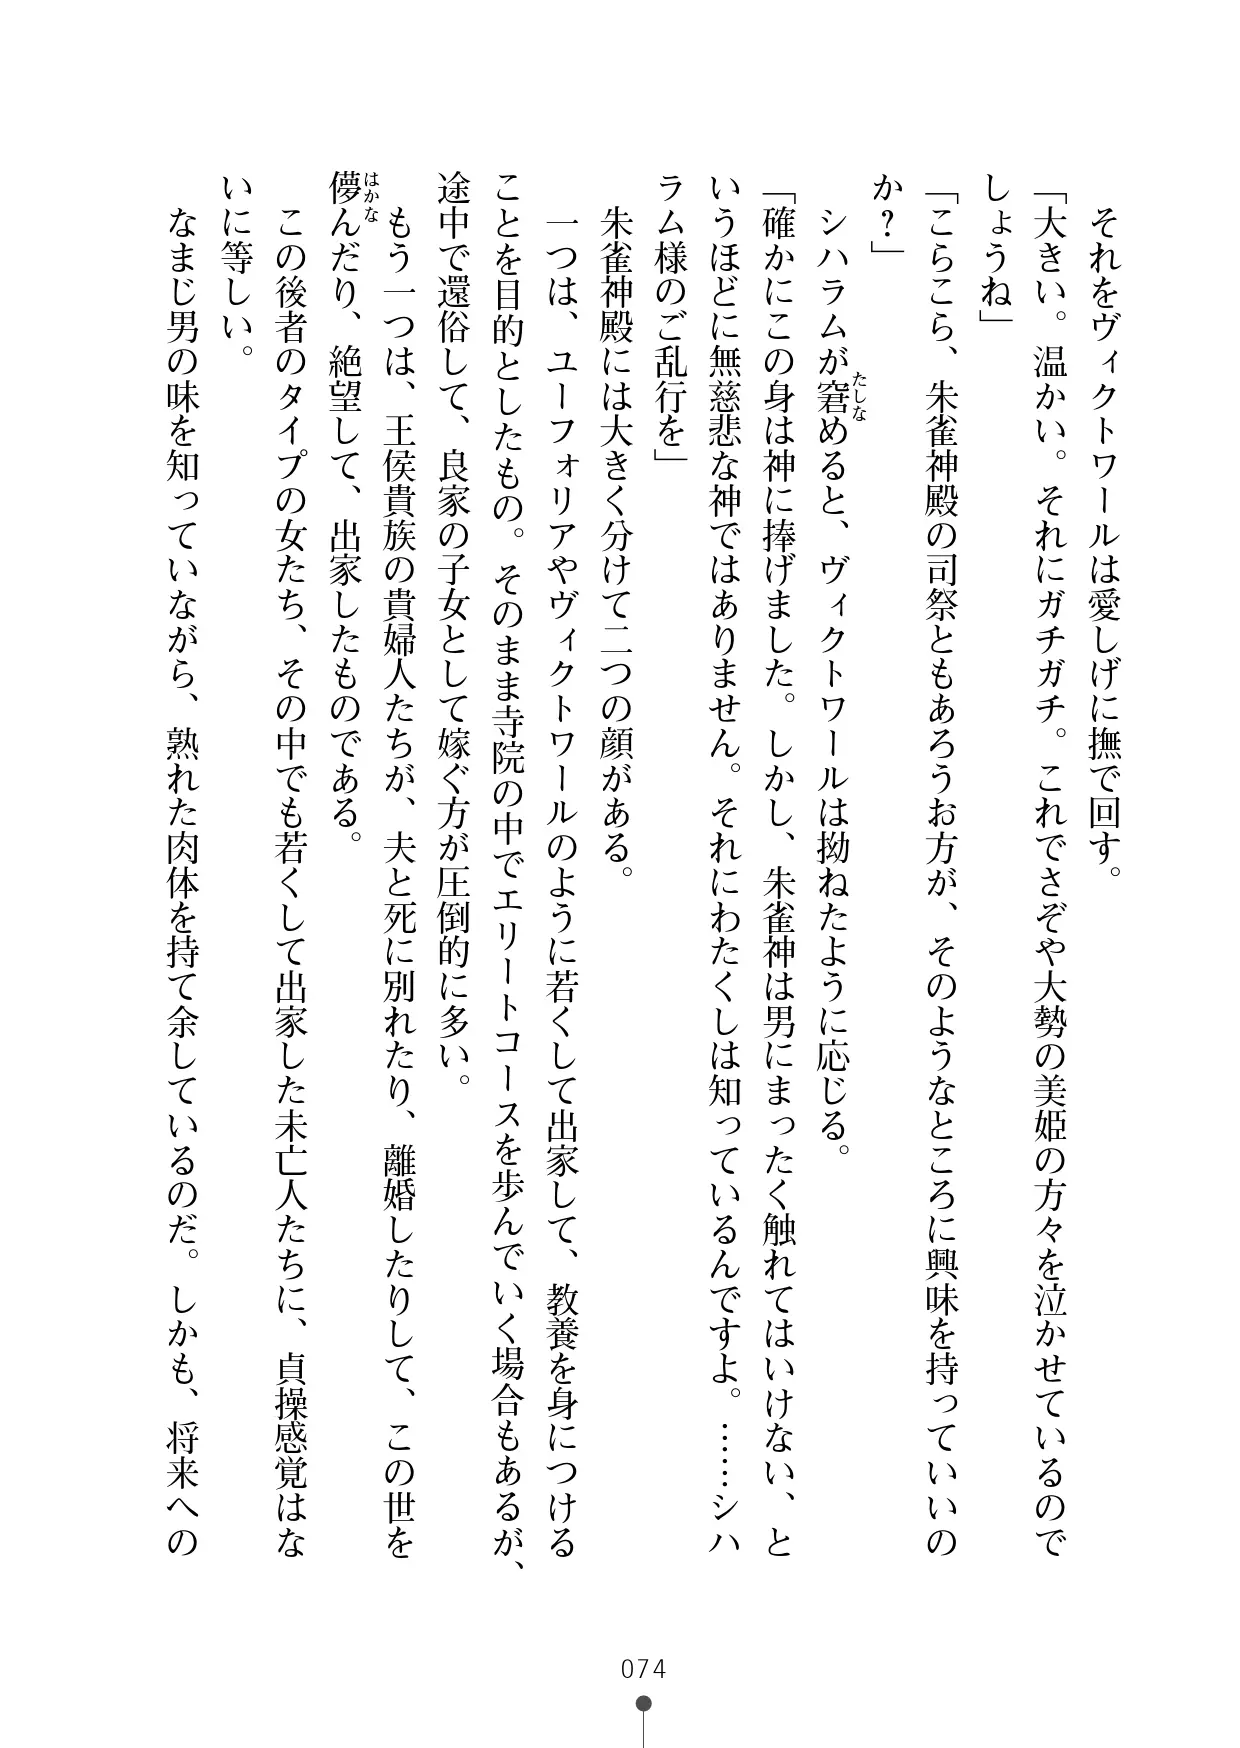 それをヴィクトワールは愛しげに撫で回す。
「大きい。温かい。それにガチガチ。これでさぞや大勢の美姫の方々を泣かせているので
しょうね」
「こらこら、朱雀神殿の司祭ともあろうお方が、そのようなところに興味を持っていいの
か？」
シハラムが窘めると、ヴィクトワールは拗ねたように応じる。
たしな
「確かにこの身は神に捧げました。しかし、朱雀神は男にまったく触れてはいけない、と
いうほどに無慈悲な神ではありません。それにわたくしは知っているんですよ。……シハ
ラム様のご乱行を」
朱雀神殿には大きく分けて二つの顔がある。
一つは、ユーフォリアやヴィクトワールのように若くして出家して、教養を身につける
ことを目的としたもの。そのまま寺院の中でエリートコースを歩んでいく場合もあるが、
途中で還俗して、良家の子女として嫁ぐ方が圧倒的に多い。
もう一つは、王侯貴族の貴婦人たちが、夫と死に別れたり、離婚したりして、この世を
儚んだり、絶望して、出家したものである。
はかな
この後者のタイプの女たち、その中でも若くして出家した未亡人たちに、貞操感覚はな
いに等しい。
なまじ男の味を知っていながら、熟れた肉体を持て余しているのだ。しかも、将来への
074